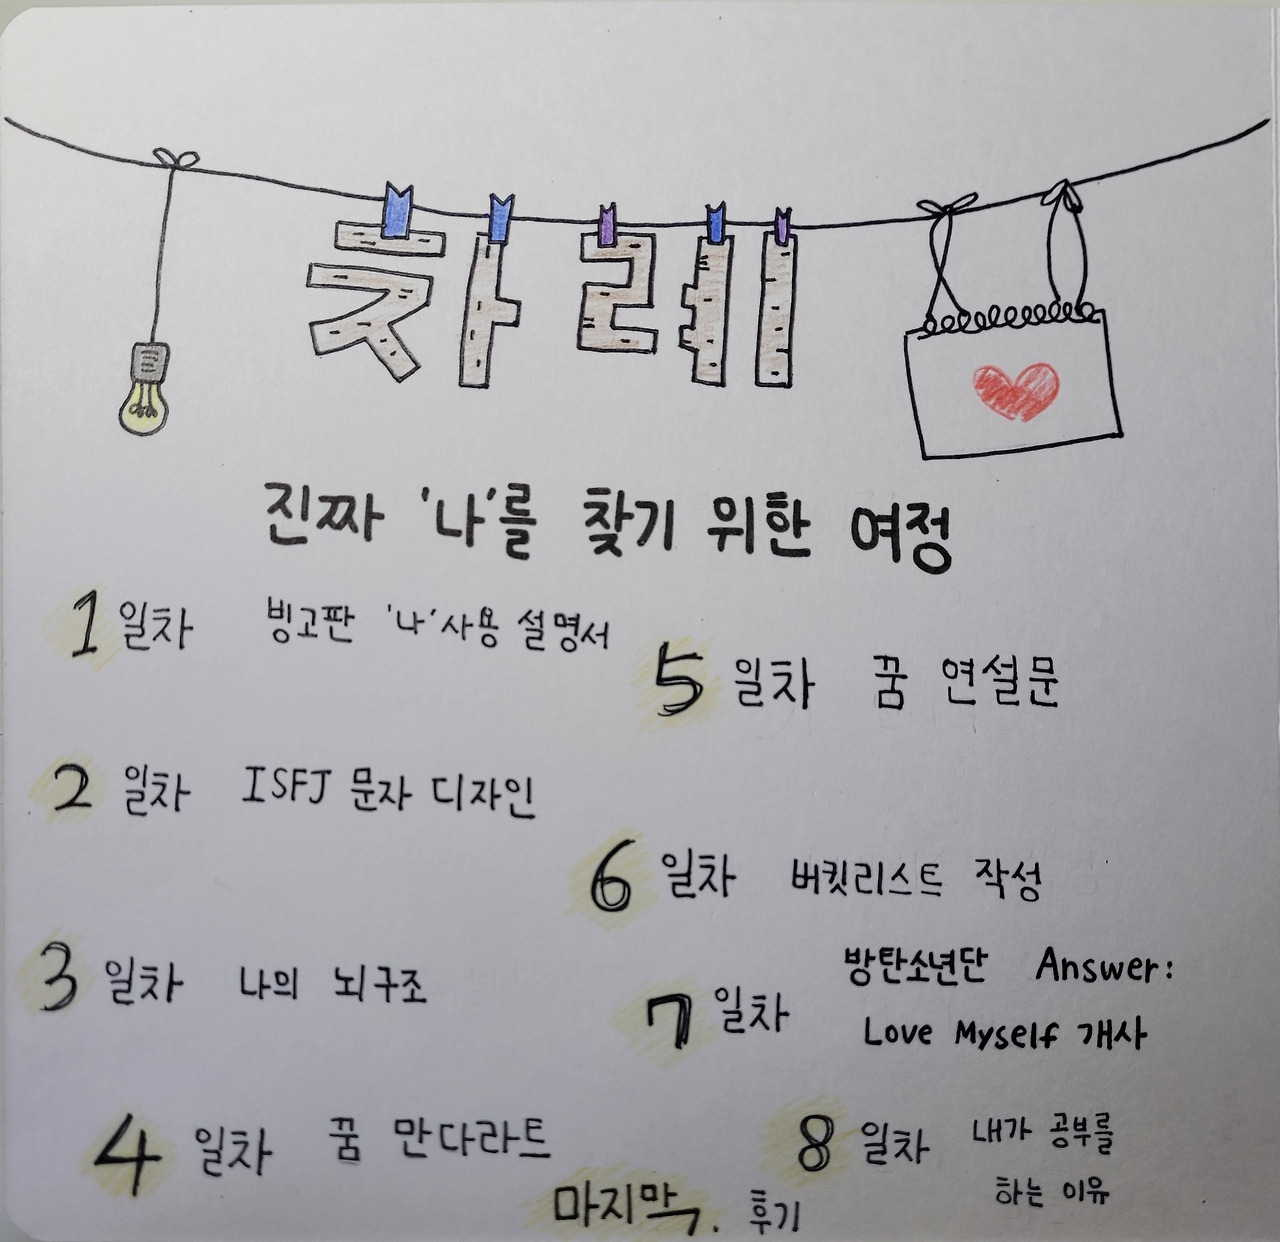 차례
진짜 '나'를 찾기 위한 여정
1일차 빙고판 '나' 사용 설명서
2일차 ISFJ 문자 디자인
3일차 나의 뇌구조
4일차 꿈 만다라트
5일차 꿈 연설문
6일차 버킷리스트 작성
7일차 방탄소년단 Answer:
Love Myself 개사
8일차 내가 공부를
하는 이유
마지막. 후기